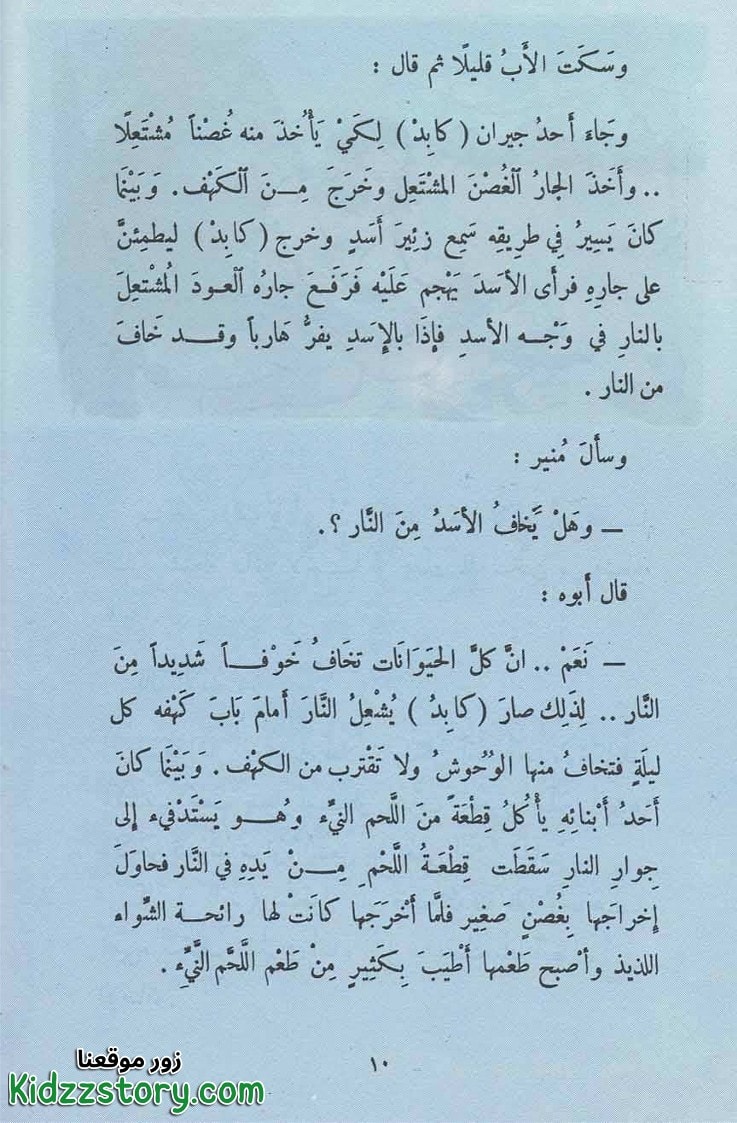 وسَكَتَ الأَبُ قليلًا ثم قال :
وجَاءَ أَحدُ جيران ( كابِدْ ) لِكَيْ يَأْخُذَ منه غُصْناً مُشْتَعِلًا
.. وأَخَذَ الجارُ الْغُصْنَ المشْتعِل وخَرَجَ مِنَ الْكَهْف . وَبَيْنَمَا
كانَ يَسِيرُ فِي طرِيقِه سَمِع زئِيرَ أَسَدٍ وخرج ( كابِدْ ) ليطمِئنَّ
على جارِهِ فرأى الأسَدَ يَهْجم عَلَيْه فَرَفَعَ جارُه الْعودَ الْمُشْتعِلَ
بالنارِ في وَجْه الأسدِ فإذَا بالإسَدِ يفرُّ هَارباً وقد خَافَ
من النار .
وسأَلَ مُنير :
— وهَلْ يَخافُ الأسَدُ مِنَ النَّار ؟.
قال أَبوه :
— نَعَمْ .. انَّ كلَّ الحيَوَانَات تخَافُ خَوْفاً شَدِيداً مِنَ
النَّار .. لِذَلِك صارَ ( كابِدُ ) يُشْعِلُ النَّارَ أَمامَ بَابَ كَهْفه كل
ليلَةٍ فتخافُ منها الوُحُوشُ ولا تَقْترب من الكهْف . وَبَيْنَمَا كانَ
أَحَدُ أَبْنائِهِ يأْكُلُ قِطْعَةً منَ اللَّحم النيِّء وهُو يَسْتَدْفيء إلى
جِوارِ النارِ سَقَطَت قِطْعَةُ اللَّحْمِ مِنْ يَدِهِ في النَّار فحاوَلَ
إخراجَها بِغُصْنٍ صَغِيرٍ فلمَّا أَخْرَجَها كانَتْ لها رائحة الشِّواء
اللذيذ وأصْبح طَعْمها أَطْيَبَ بِكَثِيرٍ مِنْ طَعْم اللَّحْم النَّيِّءِ .
١٠
زور موقعنا
Kidzzstory.com